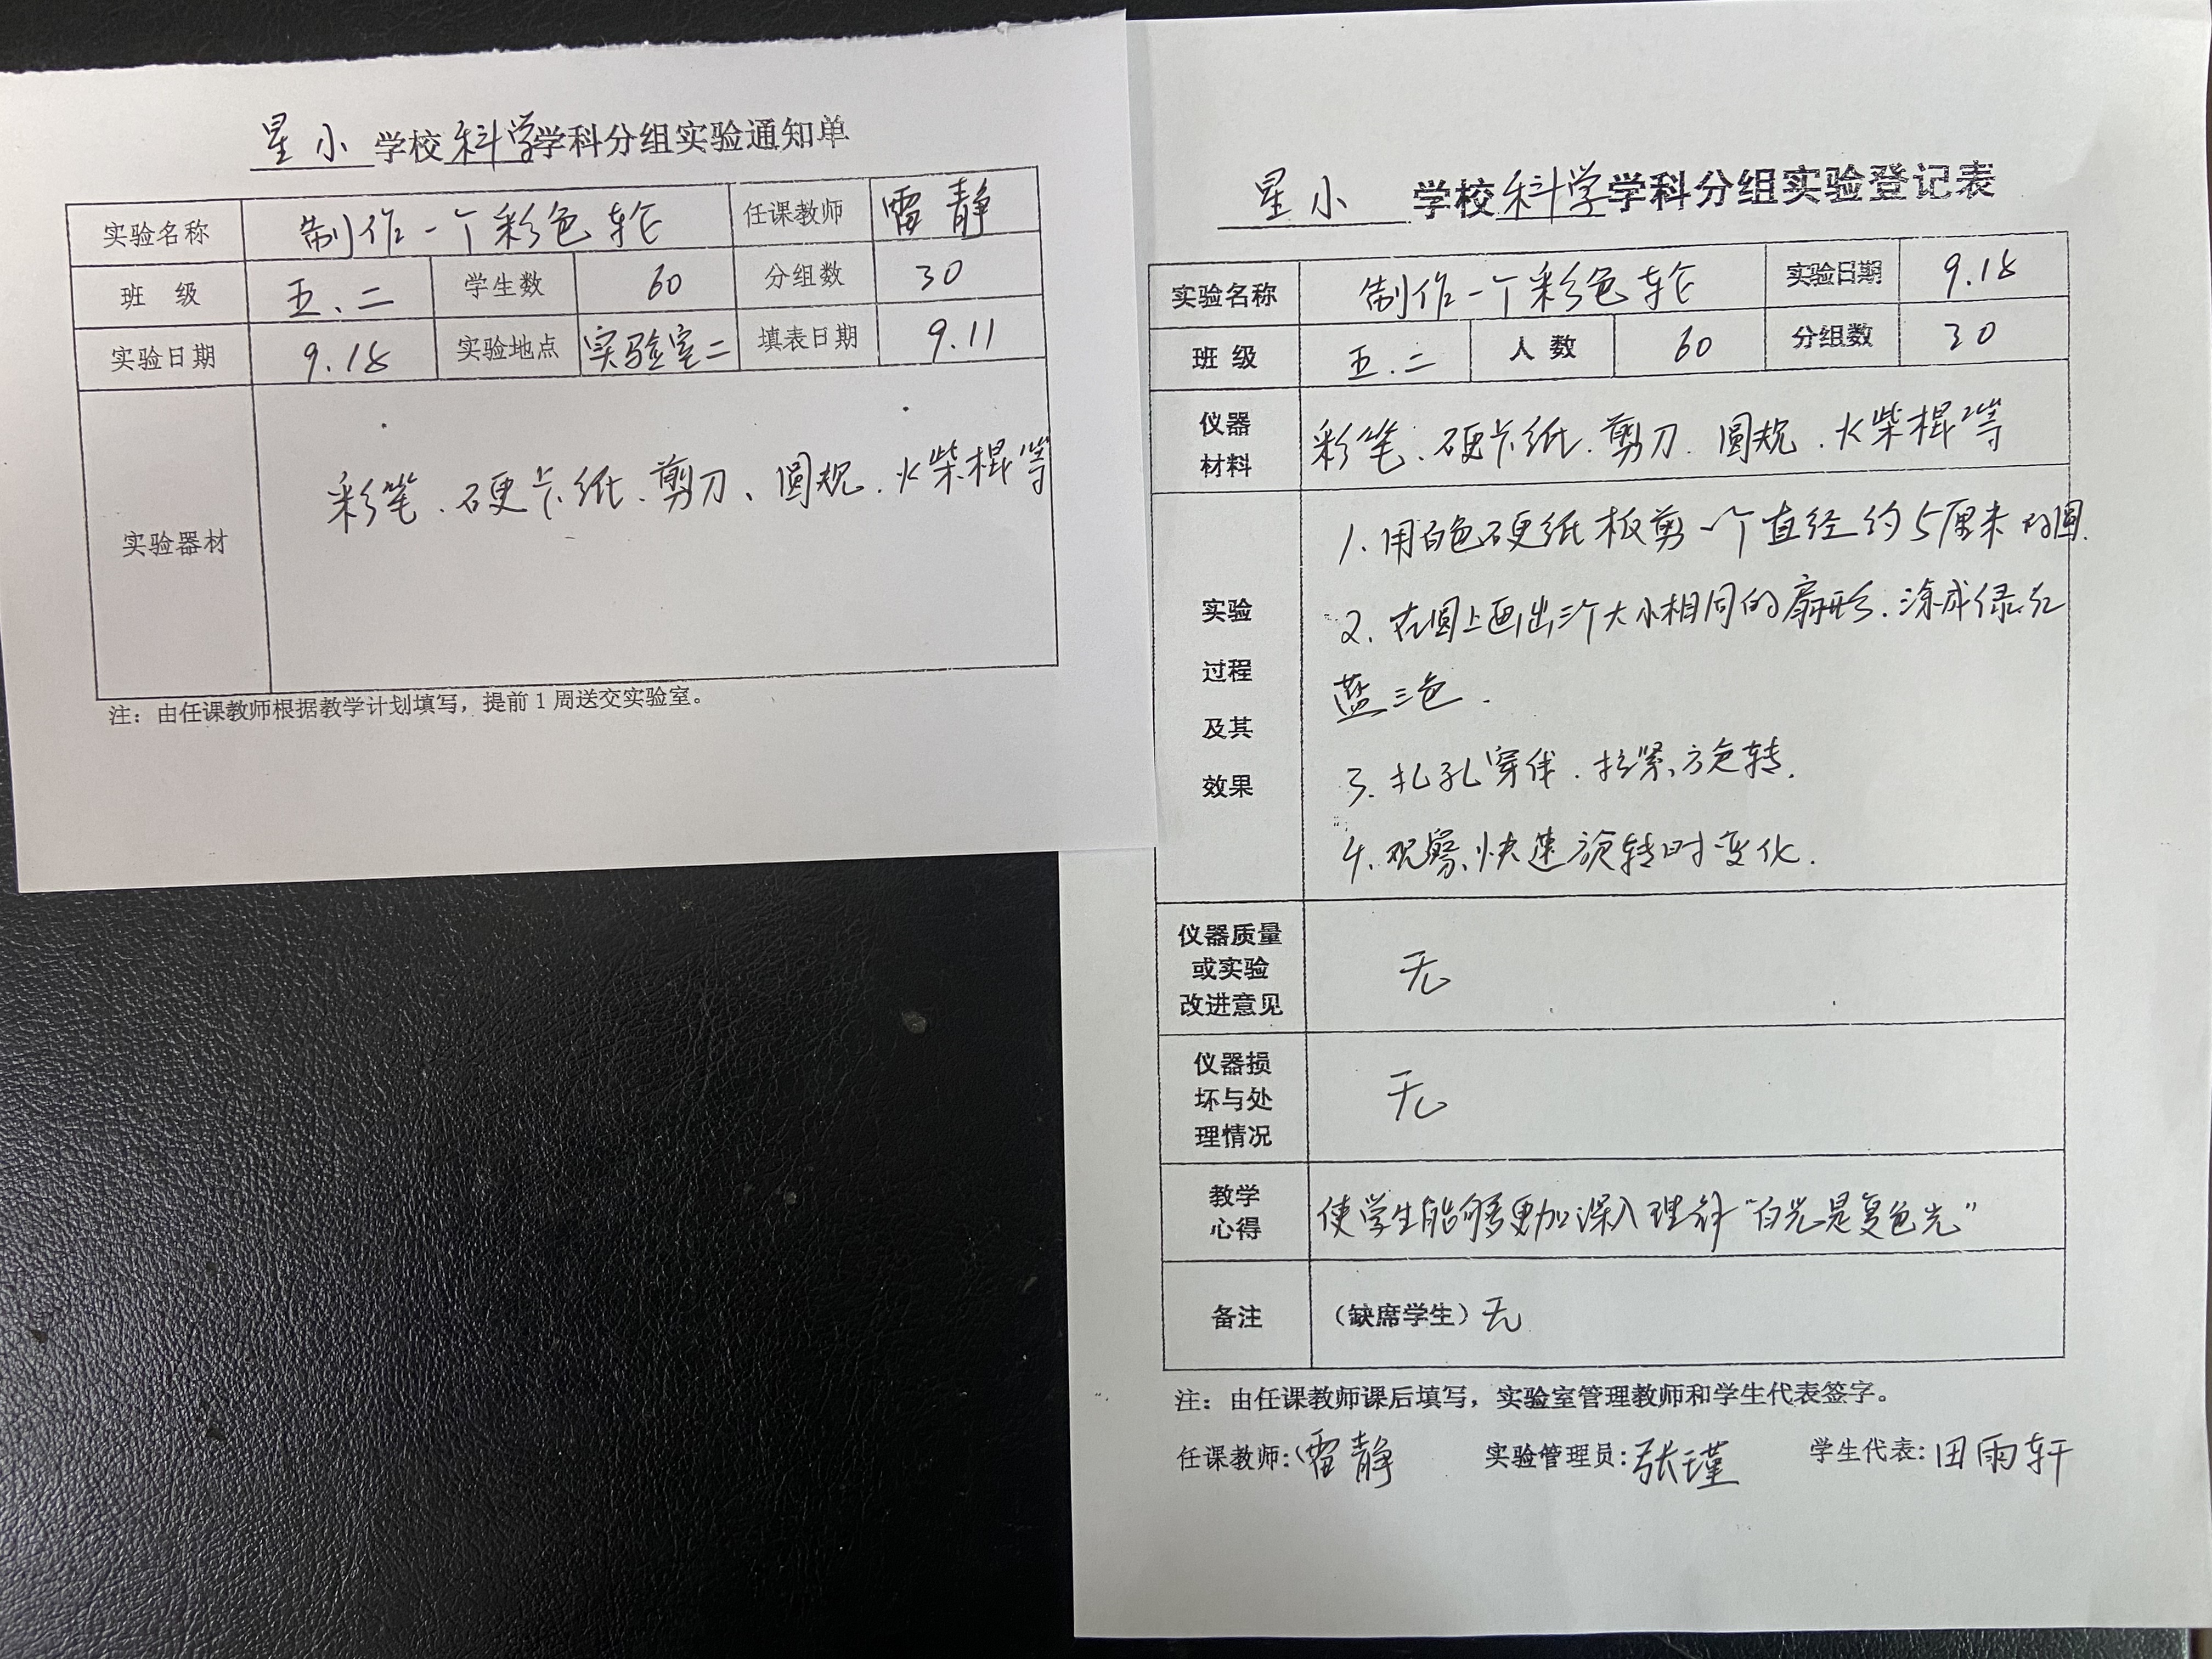 星小学校科学学科分组实验通知单
实验名称 制作一个彩色轮 任课教师 雷静
班 级 五.二 学生数 60 分组数 30
实验日期 9.18 实验地点 实验室二 填表日期 9.11
实验器材 彩笔、硬卡纸、剪刀、圆规、火柴棍等
注：由任课教师根据教学计划填写，提前1周送交实验室。
星小学校科学学科分组实验登记表
实验名称 制作一个彩色轮 实验日期 9.18
班 级 五.二 人 数 60 分组数 30
仪器
材料
彩笔、硬卡纸、剪刀、圆规、火柴棍等
实验
过程
及其
效果
1. 用白色硬纸板剪一个直径约5厘米的圆.
2. 在圆上画出三个大小相同的扇形.涂成绿.红
蓝三色.
3. 扎孔穿.拉紧、旋转.
4. 观察、快速旋转时变化.
仪器质量
或实验
改进意见
无
仪器损
坏与处
理情况
无
教学
心得
使学生能够更加深入理解“白光是复色光”
备注 （缺席学生）无
注：由任课教师课后填写，实验室管理教师和学生代表签字。
任课教师：雷静 实验管理员：张瑾 学生代表：田雨轩